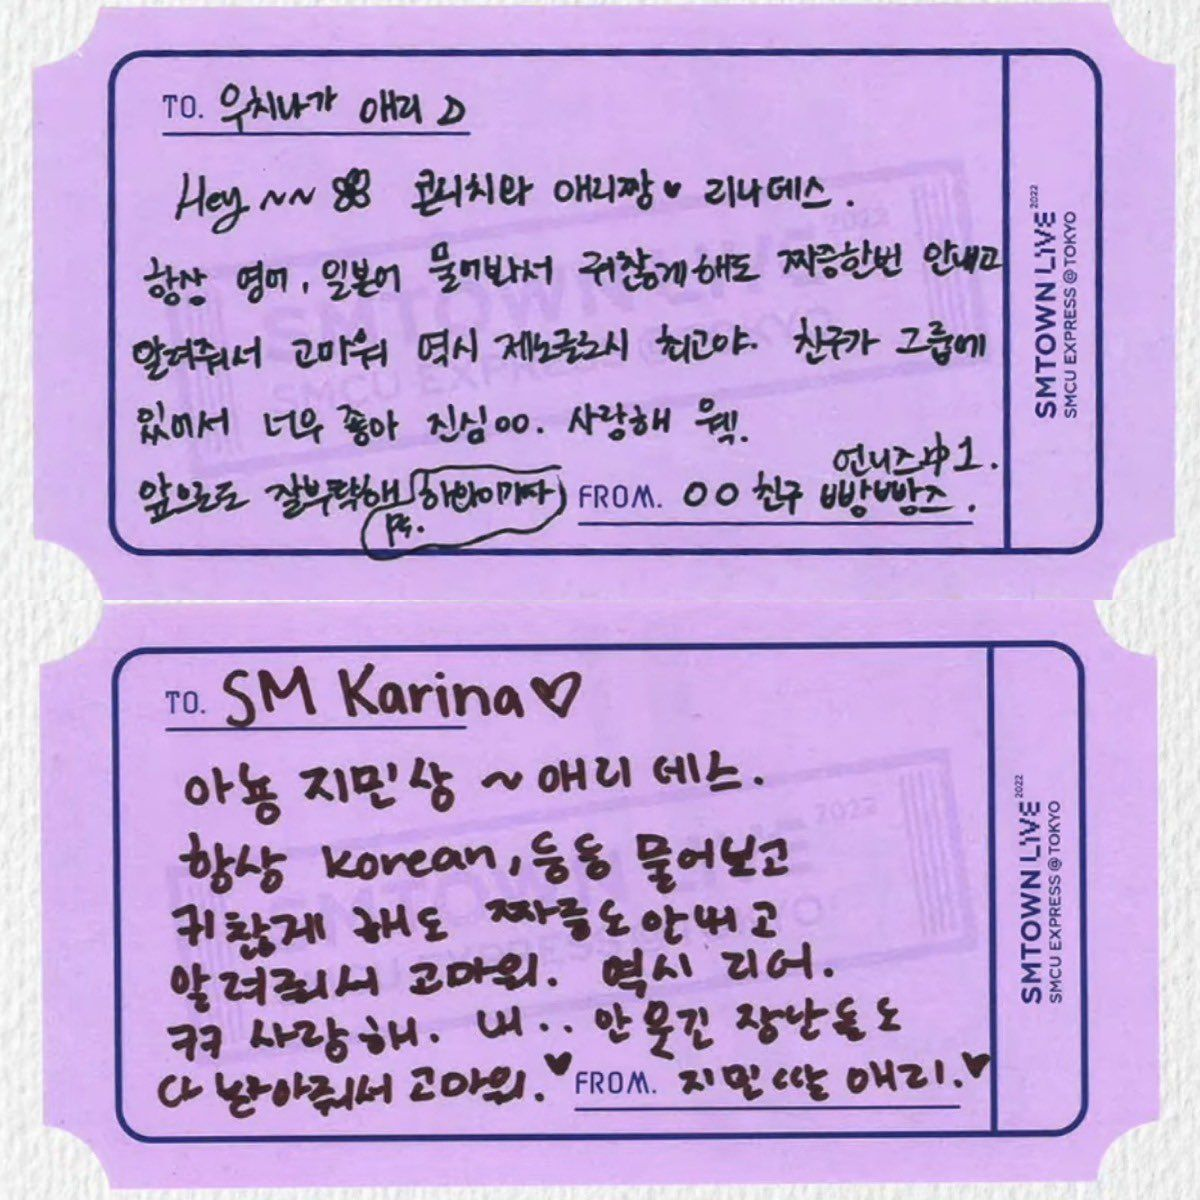 TO. 우치나가 애리 D
Hey ~~ 콘니치와 애리짱♥ 리나데스.
항상 영어, 일본어 물어봐서 귀찮게해도 짜증한번 안내고
알려줘서 고마워 역시 제노글로시 최고야. 친구가 그룹에
있어서 너무 좋아 진심00. 사랑해 웩.
앞으로도 잘부탁해 (하와이가자)
ps.
언니즈 中 1.
FROM. 00 친구 빵빵즈.
SMTOWN LIVE 2022
SMCU EXPRESS@TOKYO
TO. SM Karina♡
아뇽 지민상 ~ 애리 데스.
항상 korean, 등등 물어보고
귀찮게 해도 짜증도 안내고
알려줘서 고마워. 역시 리더.
ㅋㅋ 사랑해. 내.. 안웃긴 장난들도
다 받아줘서 고마워.♥
FROM. 지민 딸 애리.♥
SMTOWN LIVE 2022
SMCU EXPRESS@TOKYO